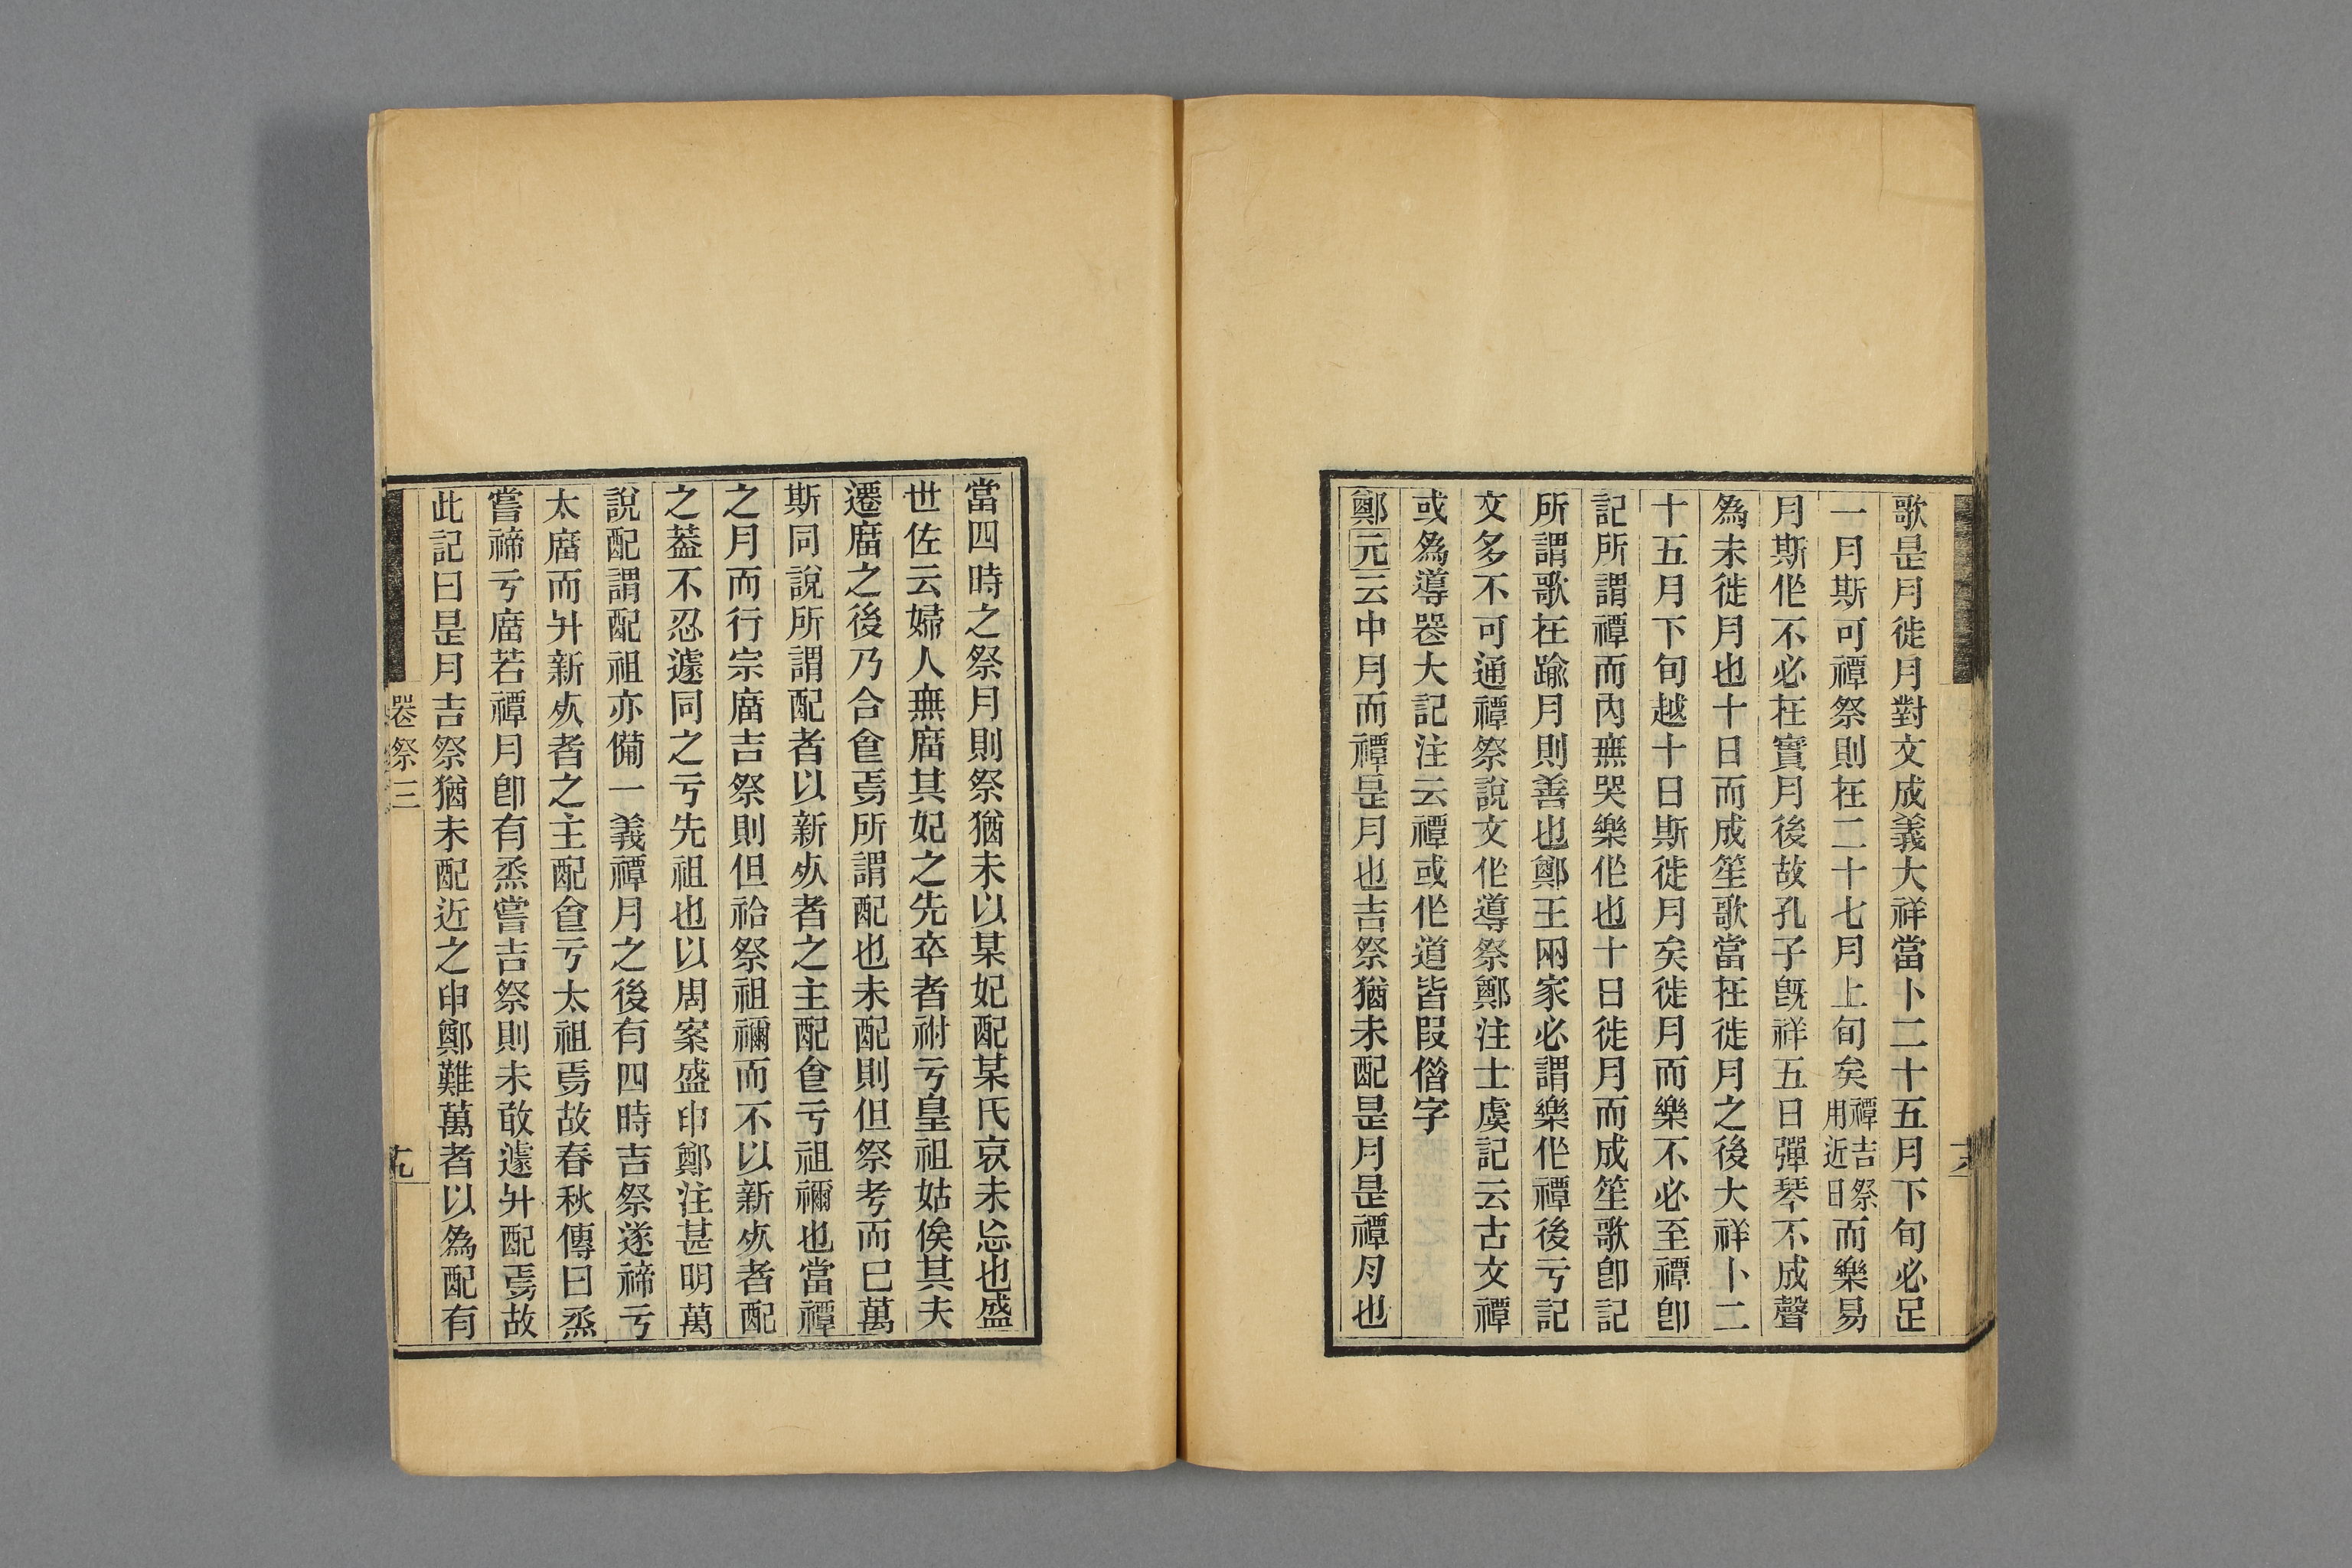 歌是月徙月對文成義大祥當卜二十五月下旬必足
一月斯可禫祭則在二十七月上旬矣禫吉祭用近日而樂易
月斯作不必在實月後故孔子旣祥五日彈琴不成聲
爲未徙月也十日而成笙歌當在徙月之後大祥卜二
十五月下旬越十日斯徙月矣徙月而樂不必至禫卽
記所謂禫而內無哭樂作也十日徙月而成笙歌卽記
所謂歌在踰月則善也鄭王兩家必謂樂作禫後亏記
文多不可通禫祭說文作導祭鄭注士虞記云古文禫
或爲導喪大記注云禫或作道皆叚借字
鄭元云中月而禫是月也吉祭猶未配是月是禫月也
十八
當四時之祭月則祭猶未以某妃配某氏哀未忘也盛
世佐云婦人無廟其妃之先卒者祔亏皇祖姑俟其夫
遷廟之後乃合食焉所謂配也未配則但祭考而已萬
斯同說所謂配者以新死者之主配食亏祖禰也當禫
之月而行宗廟吉祭則但祫祭祖禰而不以新死者配
之葢不忍遽同之亏先祖也以周案盛申鄭注甚明萬
說配謂配祖亦備一義禫月之後有四時吉祭遂禘亏
太廟而升新死者之主配食亏太祖焉故春秋傳曰烝
嘗禘亏廟若禫月卽有烝嘗吉祭則未敢遽升配焉故
此記曰是月吉祭猶未配近之申鄭難萬者以爲配有
喪祭三
十九